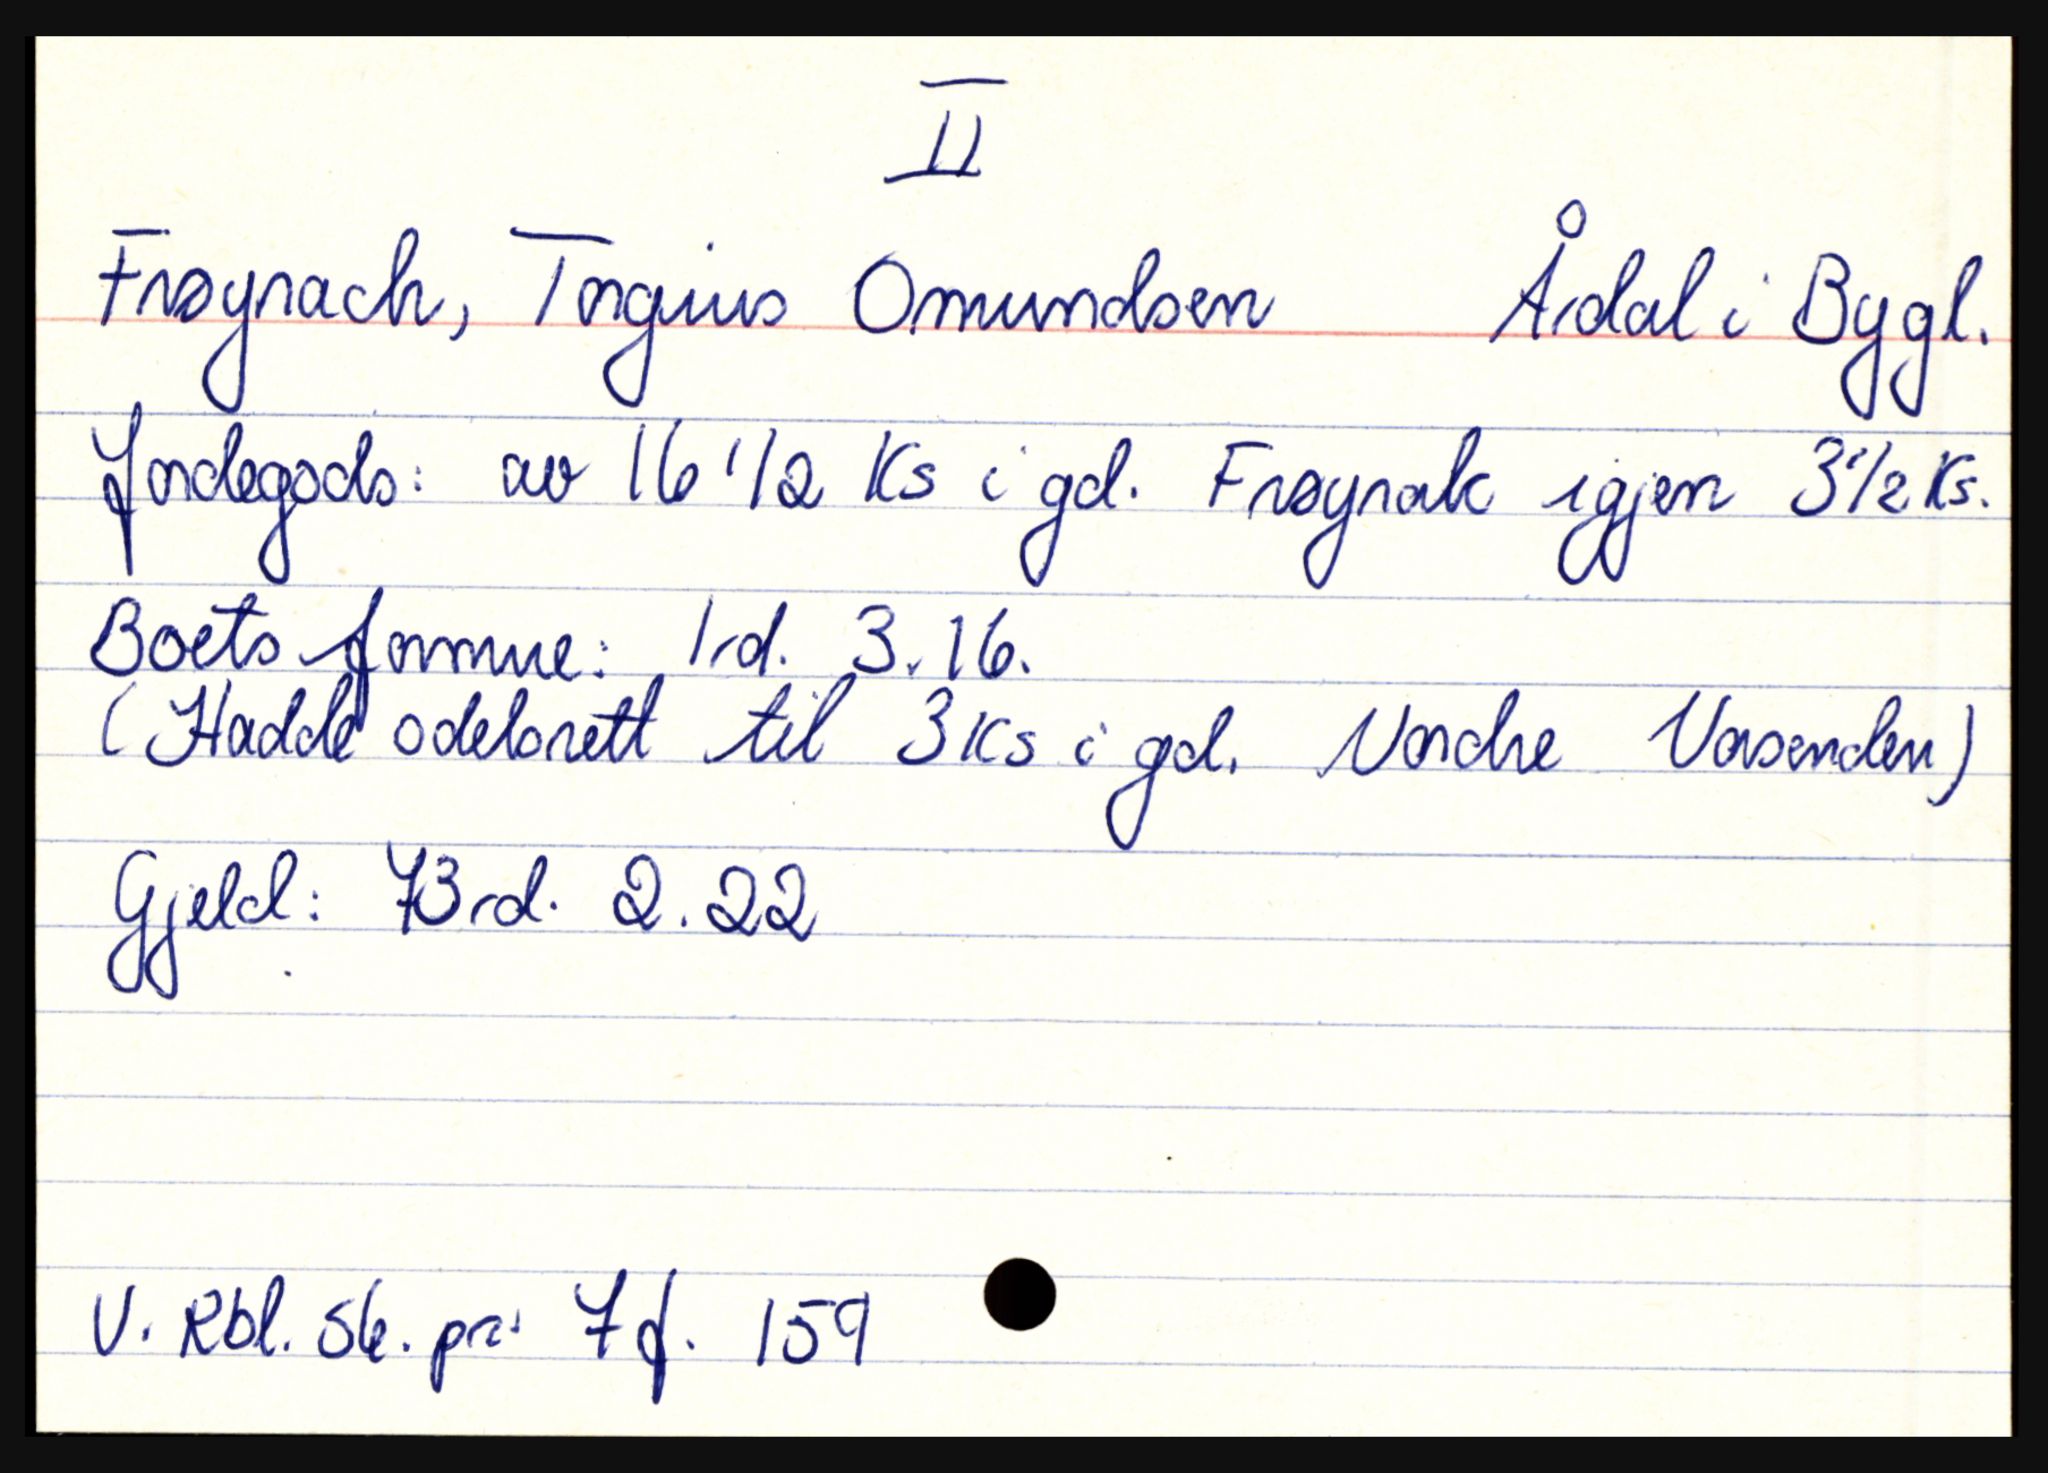 II
Frøyrach, Torgius Omundsen Årdal i Bygl.
Jordegods: av 16 1/2 Ks i gd. Frøyrak igjen 3 1/2 Ks.
Boets formue: 1rd. 3.16.
(Hadde odelsrett til 3 Ks i gd. Nordre Vasenden)
Gjeld: 73rd. 2.22
V. Rbl. Sk. pr. 7 f. 159